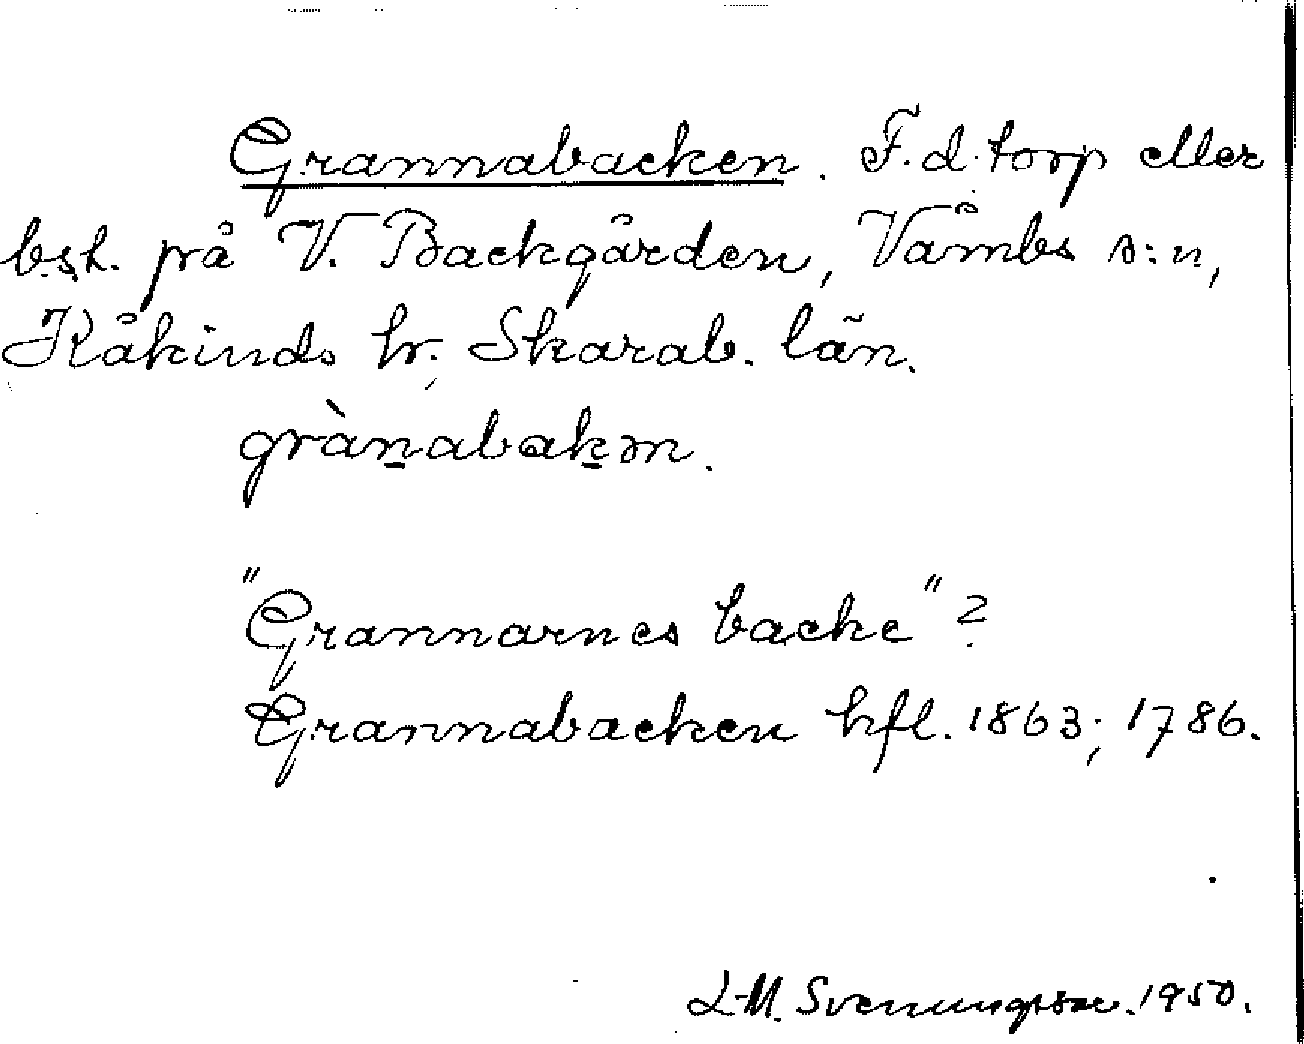 Grannabacken. F.d. torp eller
b.st. på V. Backgården, Våmbs s:n,
Kåkinds hr. Skarab. län.
gràn̠abak̠ən.
"Grannarnes backe"?
Grannabacken hfl. 1863; 1786.
L-M. Svenungsson. 1950.